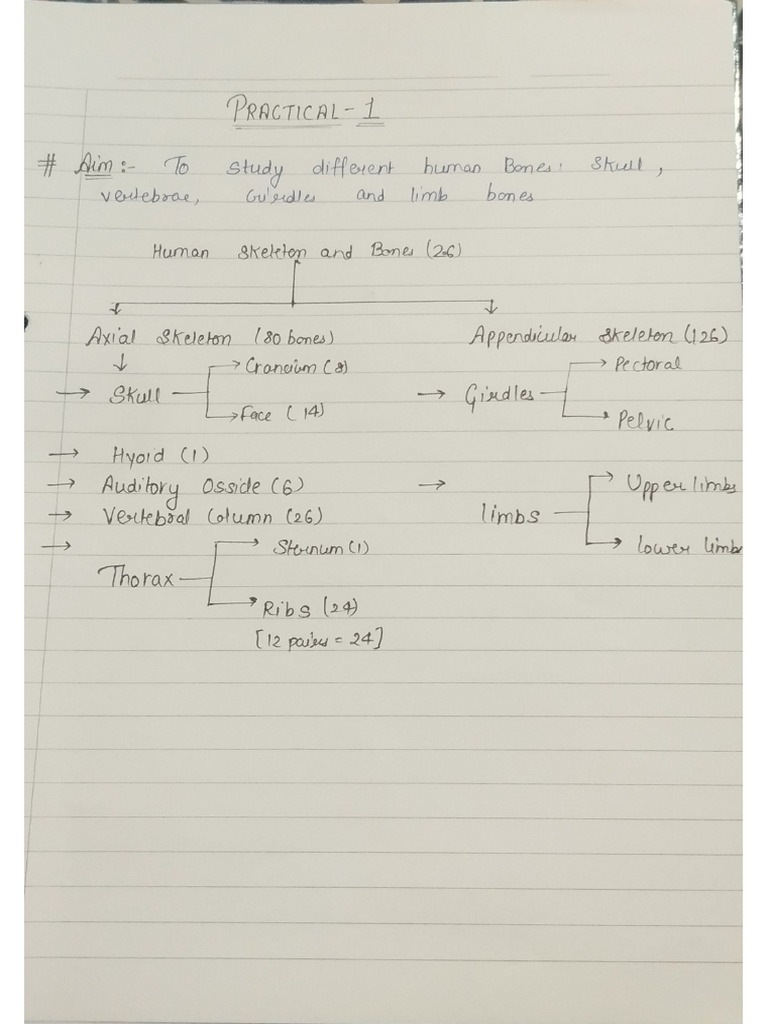 PRACTICAL - 1
# Aim :- To study different human Bones: Skull,
vertebrae, Girdles and limb bones
Human Skeleton and Bones (206)
Axial Skeleton (80 bones)
Appendicular Skeleton (126)
→ Skull
→ Cranium (8)
→ Face (14)
→ Girdles
→ Pectoral
→ Pelvic
→ Hyoid (1)
→ Auditory Osside (6)
→ Vertebral Column (26)
→ Thorax
→ Sternum (1)
→ Ribs (24)
[12 paires = 24]
→ limbs
→ Upper limbs
→ lower limbs